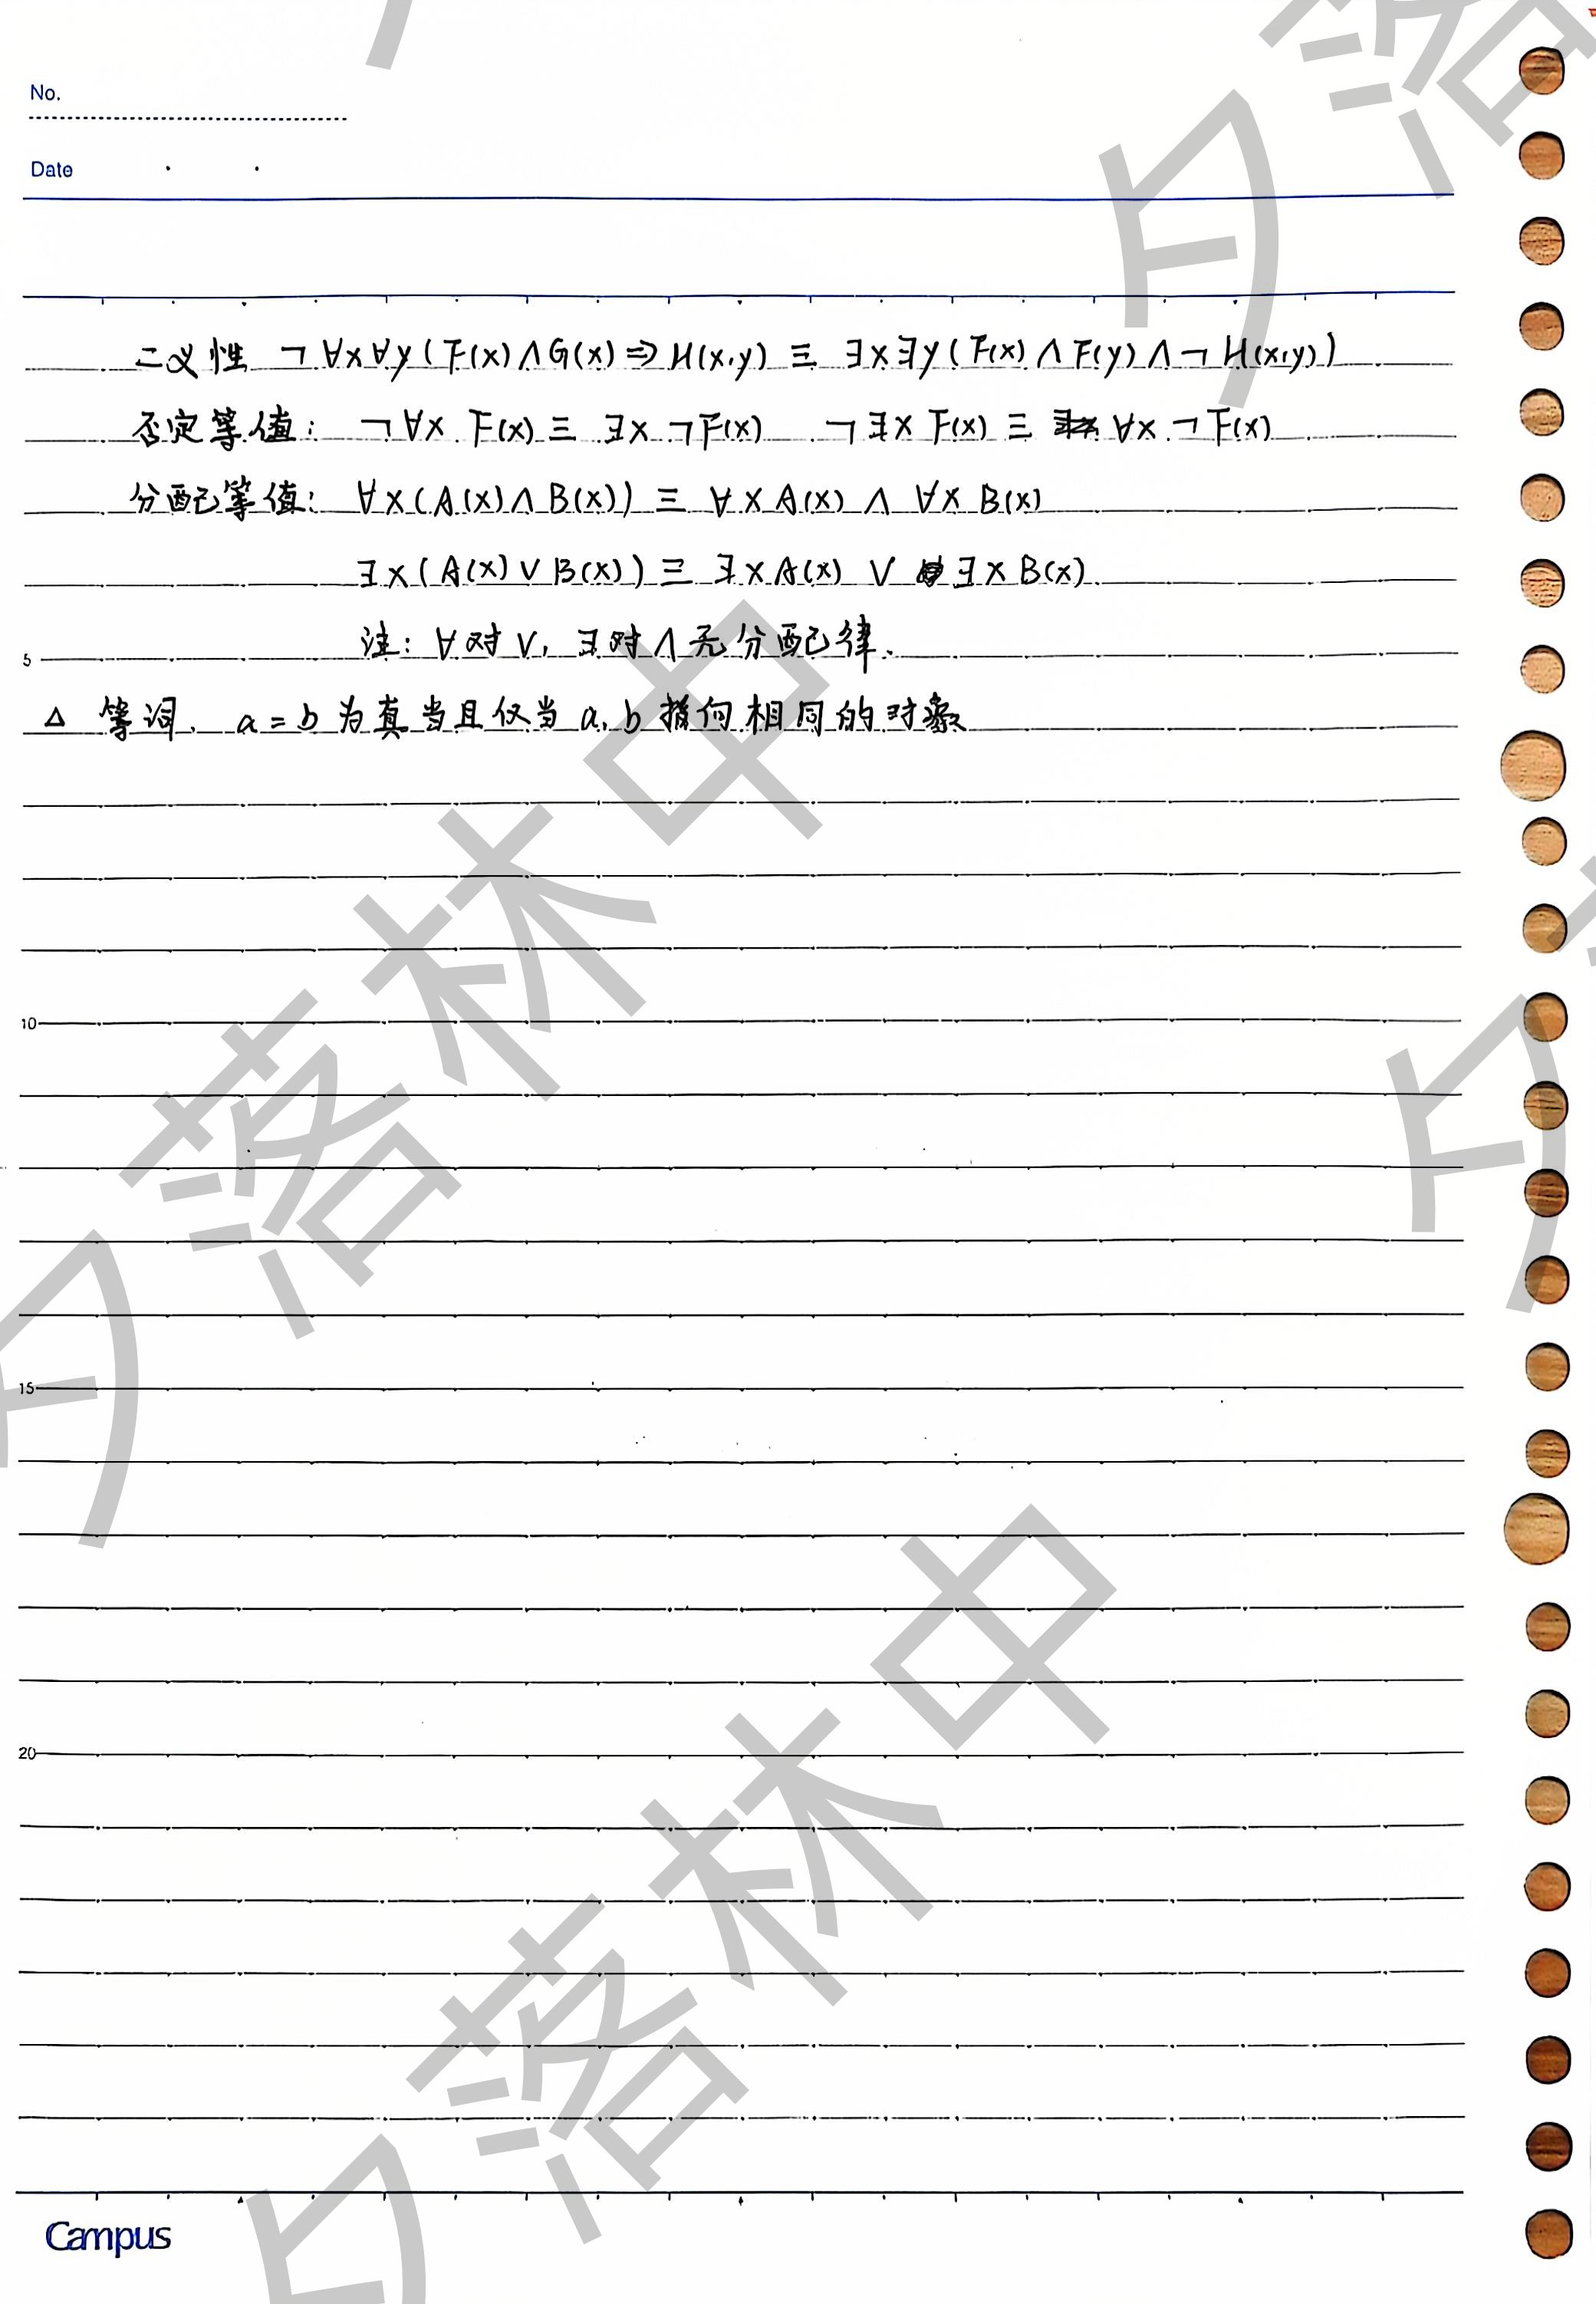 No.
Date
二义性 ¬∀x∀y(F(x)∧G(x)⇒H(x,y) ≡ ∃x∃y(F(x)∧F(y)∧¬H(x,y))
否定等值: ¬∀x F(x) ≡ ∃x ¬F(x) ¬∃x F(x) ≡ ∀x ¬F(x)
分配等值: ∀x(A(x)∧B(x)) ≡ ∀x A(x) ∧ ∀x B(x)
∃x(A(x)∨B(x)) ≡ ∃x A(x) ∨ ∃x B(x)
5 注: ∀对∨, ∃对∧无分配律.
△ 等词. a=b 为真当且仅当 a, b 指向相同的对象
10
15
20
Campus
夕落林中
夕落林中
夕落
夕